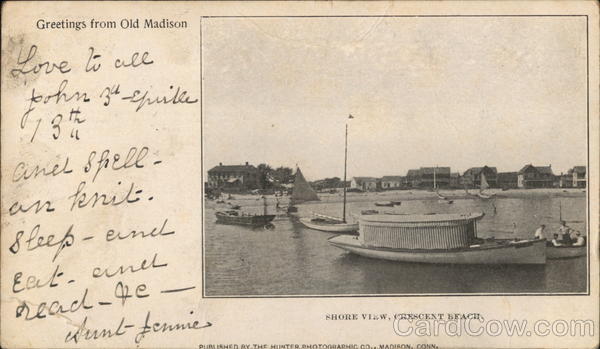 Greetings from Old Madison
Love to all
John 3d - Epistle
13th
and spell-
an knit.
Sleep - and
Eat - and
read - &c -
Aunt Jennie
SHORE VIEW, CRESCENT BEACH.
PUBLISHED BY THE HUNTER PHOTOGRAPHIC CO., MADISON, CONN.
CardCow.com